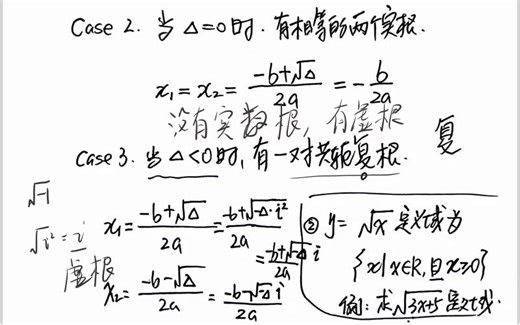 Case 2. 当 Δ=0时. 有相等的两个实根.
x₁=x₂= (-b+√Δ)/2a = -b/2a
没有实数根，有虚根
复
Case 3. 当 Δ<0时, 有一对共轭复根.
√-1
√i²=i
虚根
x₁= (-b+√Δ)/2a = (-b+√-Δ·i²)/2a
= (-b+√-Δ i)/2a
x₂= (-b-√Δ)/2a = (-b-√-Δ i)/2a
② y= √x 定义域为
{x|x∈R,且x≥0}
例: 求√3x+5 定义域.